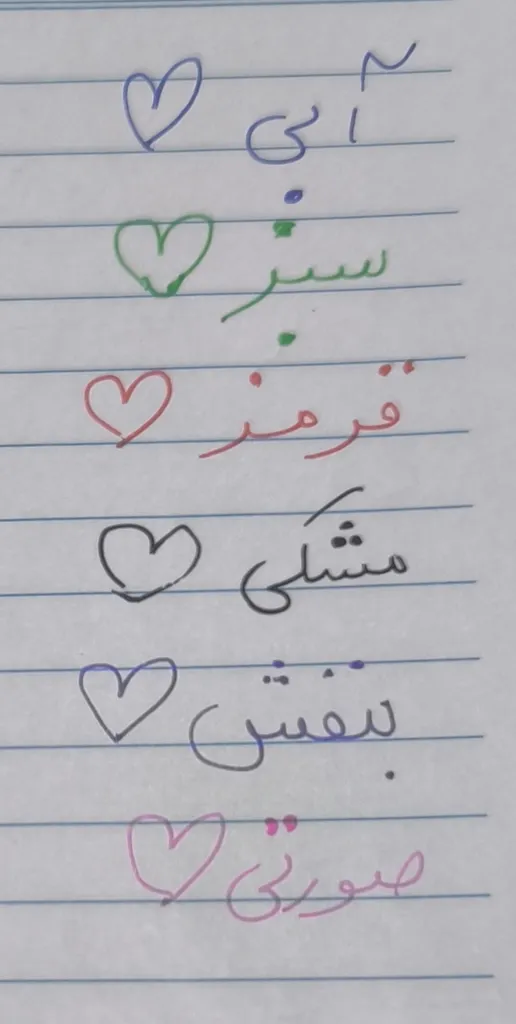 آبی ♡
سبز ♡
قرمز ♡
مشکی ♡
بنفش ♡
صورتی ♡